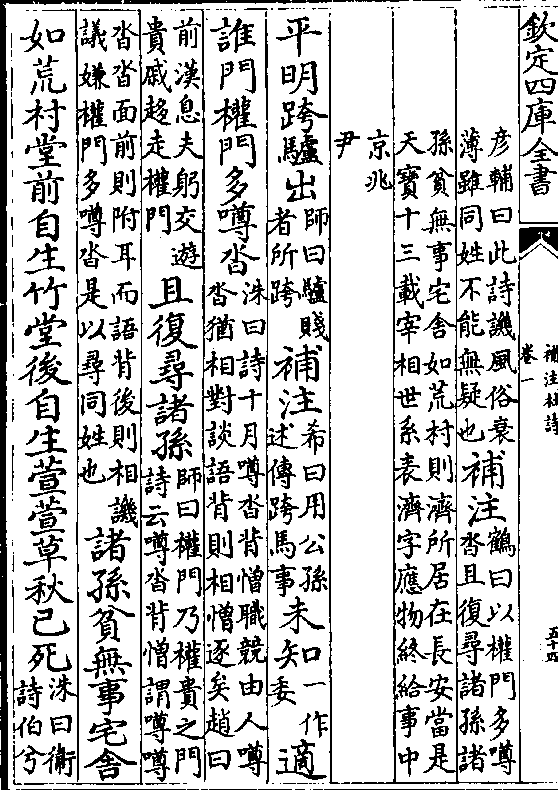 欽定四庫全書
補注杜詩
卷一
彥輔曰此詩譏風俗衰
薄雖同姓不能無疑也
補注
鶴曰以權門多噂
沓且復尋諸孫諸
孫貧無事宅舍如荒村則濟所居在長安當是
天寶十三載宰相世系表濟字應物終給事中
京兆
尹
平明跨驢出
師曰驢賤
者所跨
補注
希曰用公孫
述傳跨馬事
未知
一作
委
適
誰門權門多噂沓
洙曰詩十月噂沓背憎職競由人噂
沓猶相對談語背則相憎逐矣趙曰
前漢息夫躬交遊
貴戚趍走權門
且復尋諸孫
師曰權門乃權貴之門
詩云噂沓背憎謂噂噂
沓沓面前則附耳而語背後則相譏
議嫌權門多噂沓是以尋同姓也
諸孫貧無事宅舍
如荒村堂前自生竹堂後自生萱萱草秋已死
洙曰衛
詩伯兮